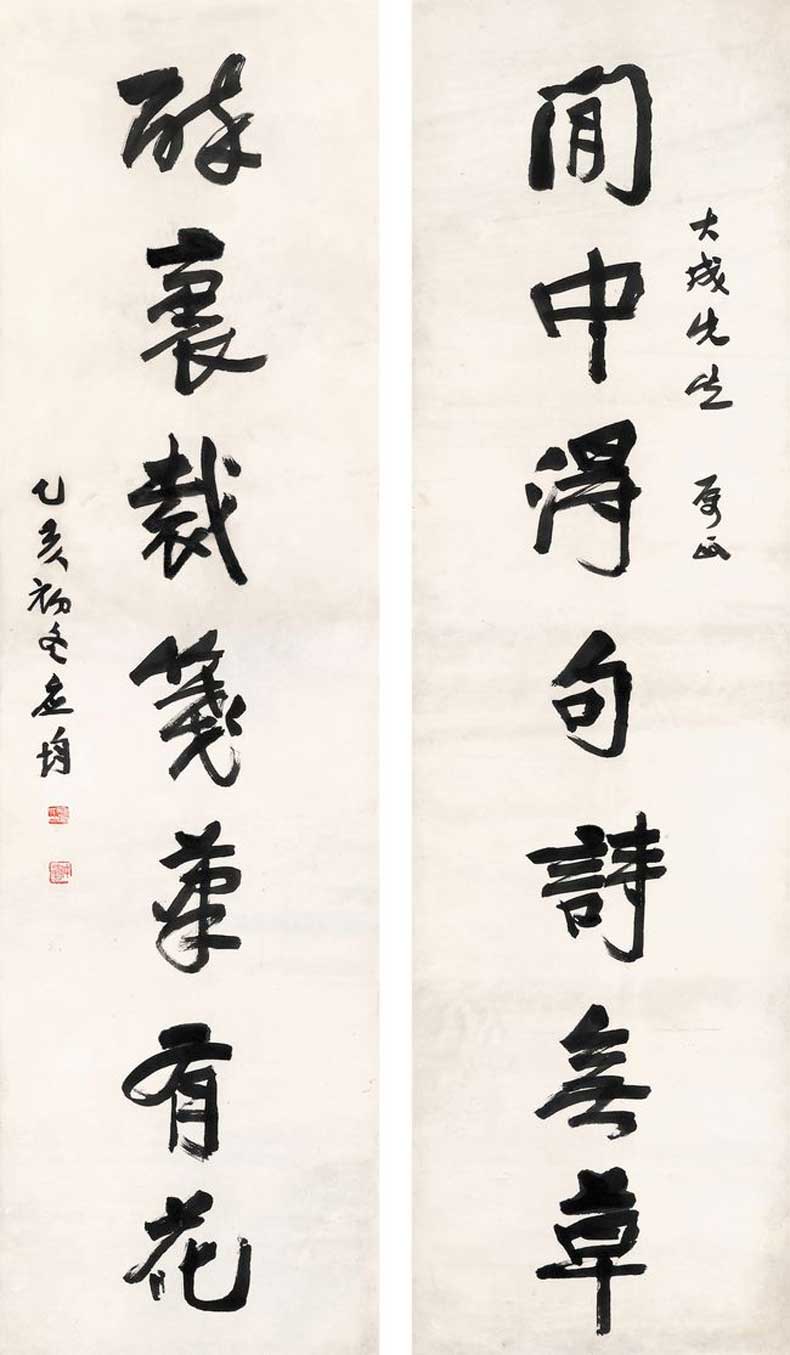 大成先生 屬正
閒中得句詩無草
醉裏裁箋筆有花
乙亥初冬應均